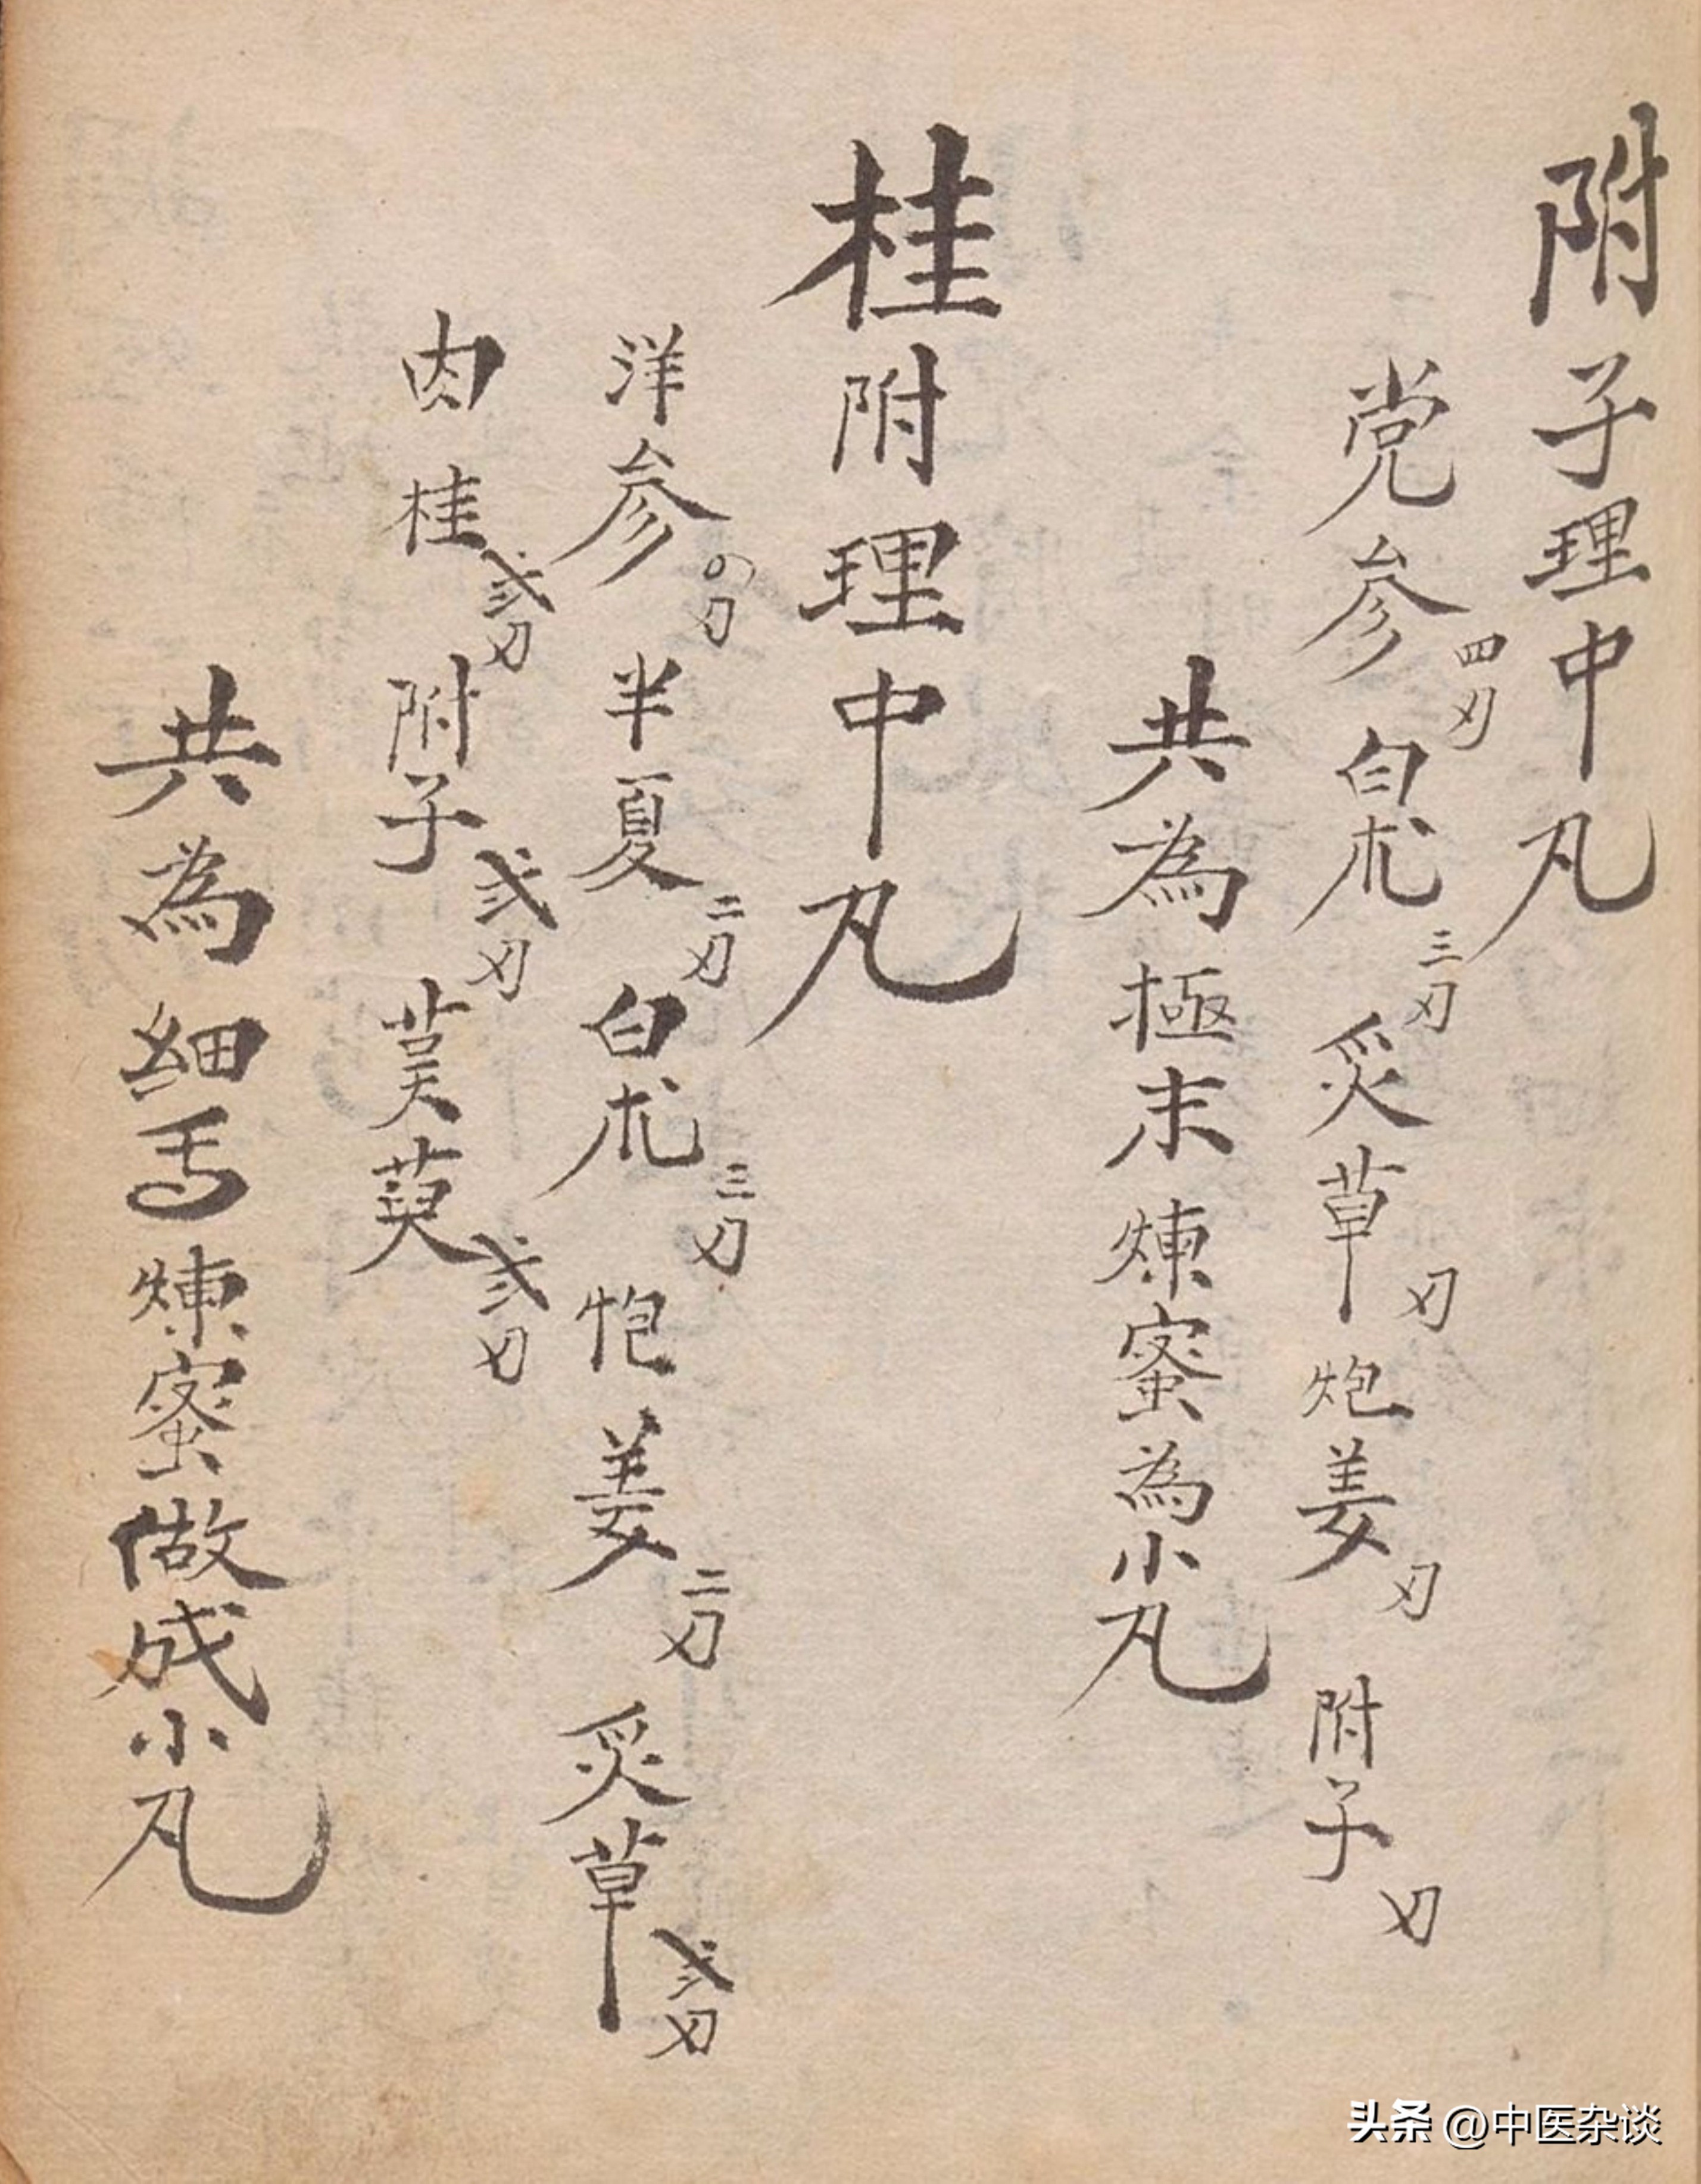 附子理中凡
党参四刃白朮三刃炙草刃炮姜刃附子刃
共為極末煉蜜為小凡
桂附理中凡
洋参半夏二刃白朮三刃炮姜二刃炙草弍刃
肉桂弍刃附子弍刃茱萸弍刃
共為細煉蜜做成小凡
头条 @中医杂谈